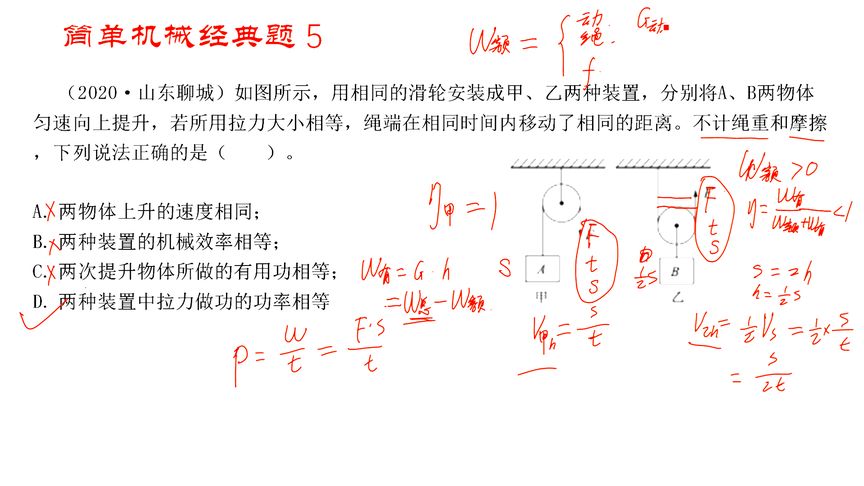 简单机械经典题5
W额 = { 动 绳 f
G动
(2020·山东聊城)如图所示,用相同的滑轮安装成甲、乙两种装置,分别将A、B两物体
匀速向上提升,若所用拉力大小相等,绳端在相同时间内移动了相同的距离。不计绳重和摩擦
,下列说法正确的是( )。
W额 > 0
A. 两物体上升的速度相同;
η甲 = 1
F
t
s
F
t
s
η = W有/(W额+W有) < 1
B. 两种装置的机械效率相等;
C. 两次提升物体所做的有用功相等;
W有 = G·h
S
A
B
½s
s = 2h
h = ½s
D. 两种装置中拉力做功的功率相等
= W总 - W额
甲
乙
P = W/t = F·s/t
V甲h = s/t
V乙h = ½Vs = ½ × s/t
= s/2t